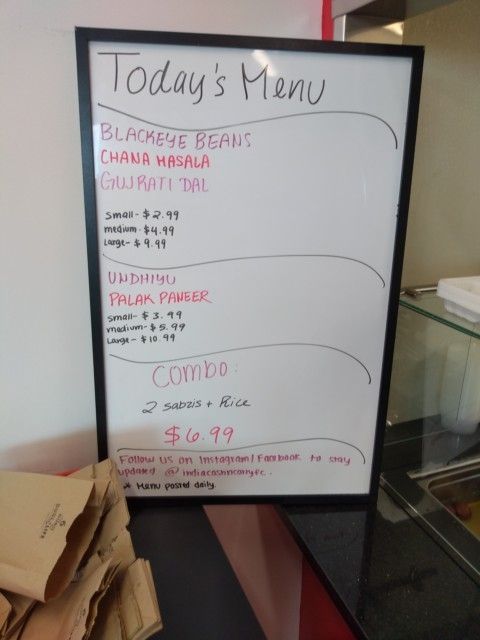 Today's Menu
BLACKEYE BEANS
CHANA MASALA
GUJRATI DAL
Small - $2.99
medium - $4.99
Large - $9.99
UNDHIYU
PALAK PANEER
Small - $3.99
medium - $5.99
Large - $10.99
Combo:
2 sabzis + Rice
$6.99
Follow us on Instagram/Facebook to stay
updated @
* Menu posted daily.